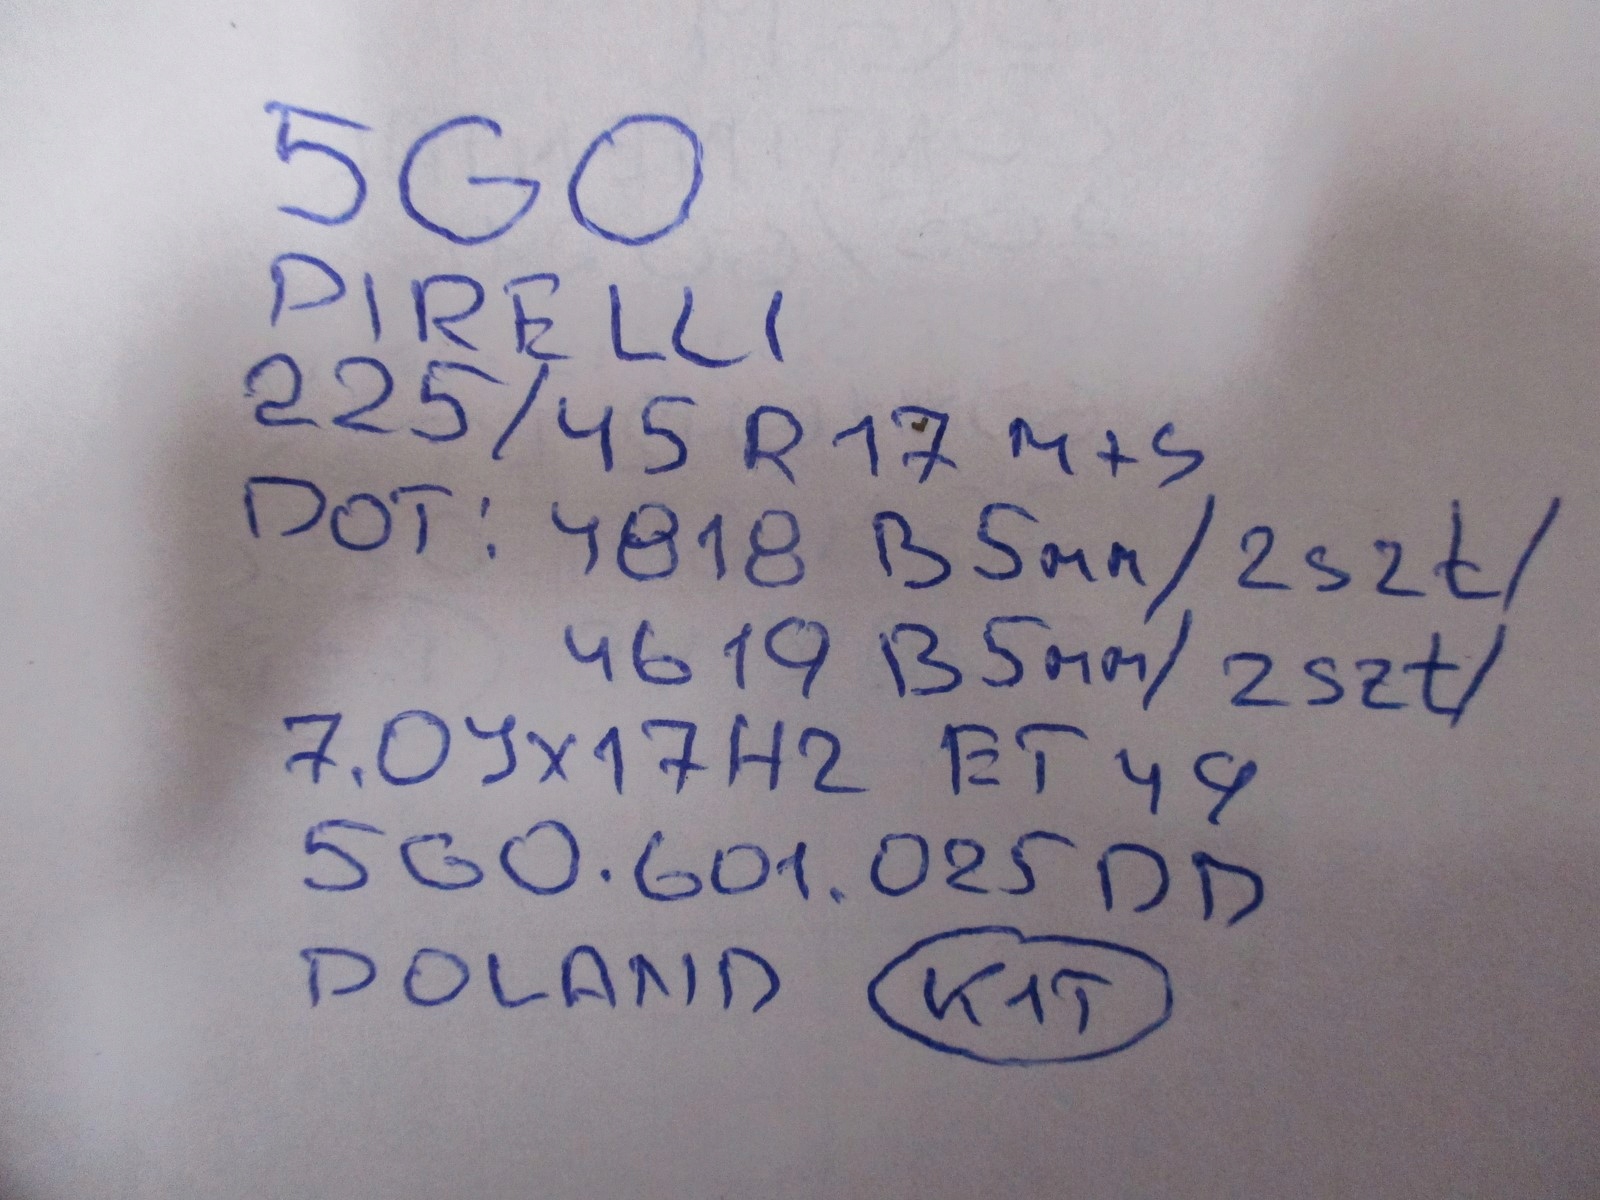 5GO
PIRELLI
225/45 R17 M+S
DOT: 4818 B5mm/2szt/
4619 B5mm/2szt/
7.0Jx17H2 ET49
5GO.601.025DD
POLAND K1T